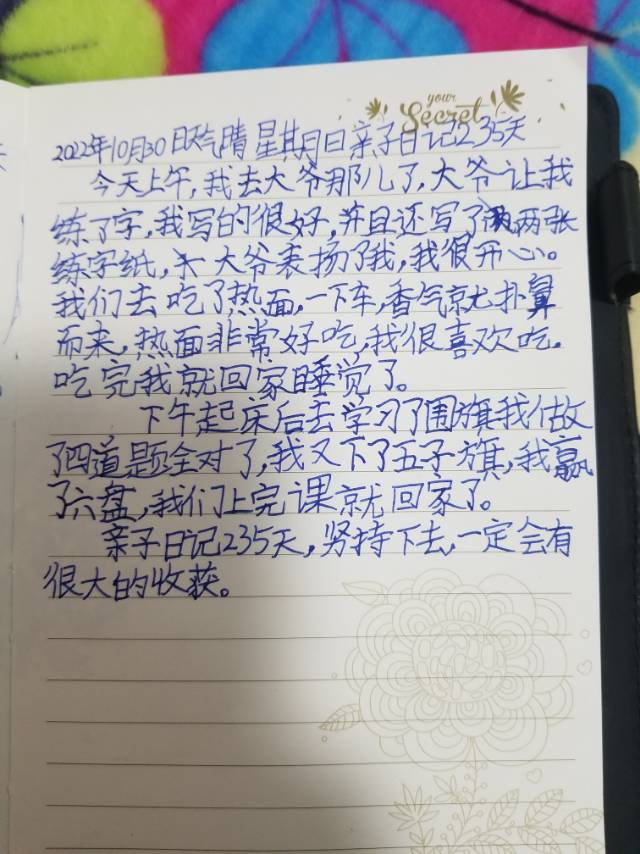 your
Secret
2022年10月30日天气晴 星期日 亲子日记235天
今天上午,我去大爷那儿了,大爷让我
练了字,我写的很好,并且还写了两张
练字纸,大爷表扬了我,我很开心。
我们去吃了热面,一下车,香气就扑鼻
而来,热面非常好吃,我很喜欢吃.
吃完我就回家睡觉了。
下午起床后去学习了围旗我做
了四道题全对了,我又下了五子旗,我赢
了六盘,我们上完课就回家了。
亲子日记235天,坚持下去,一定会有
很大的收获。